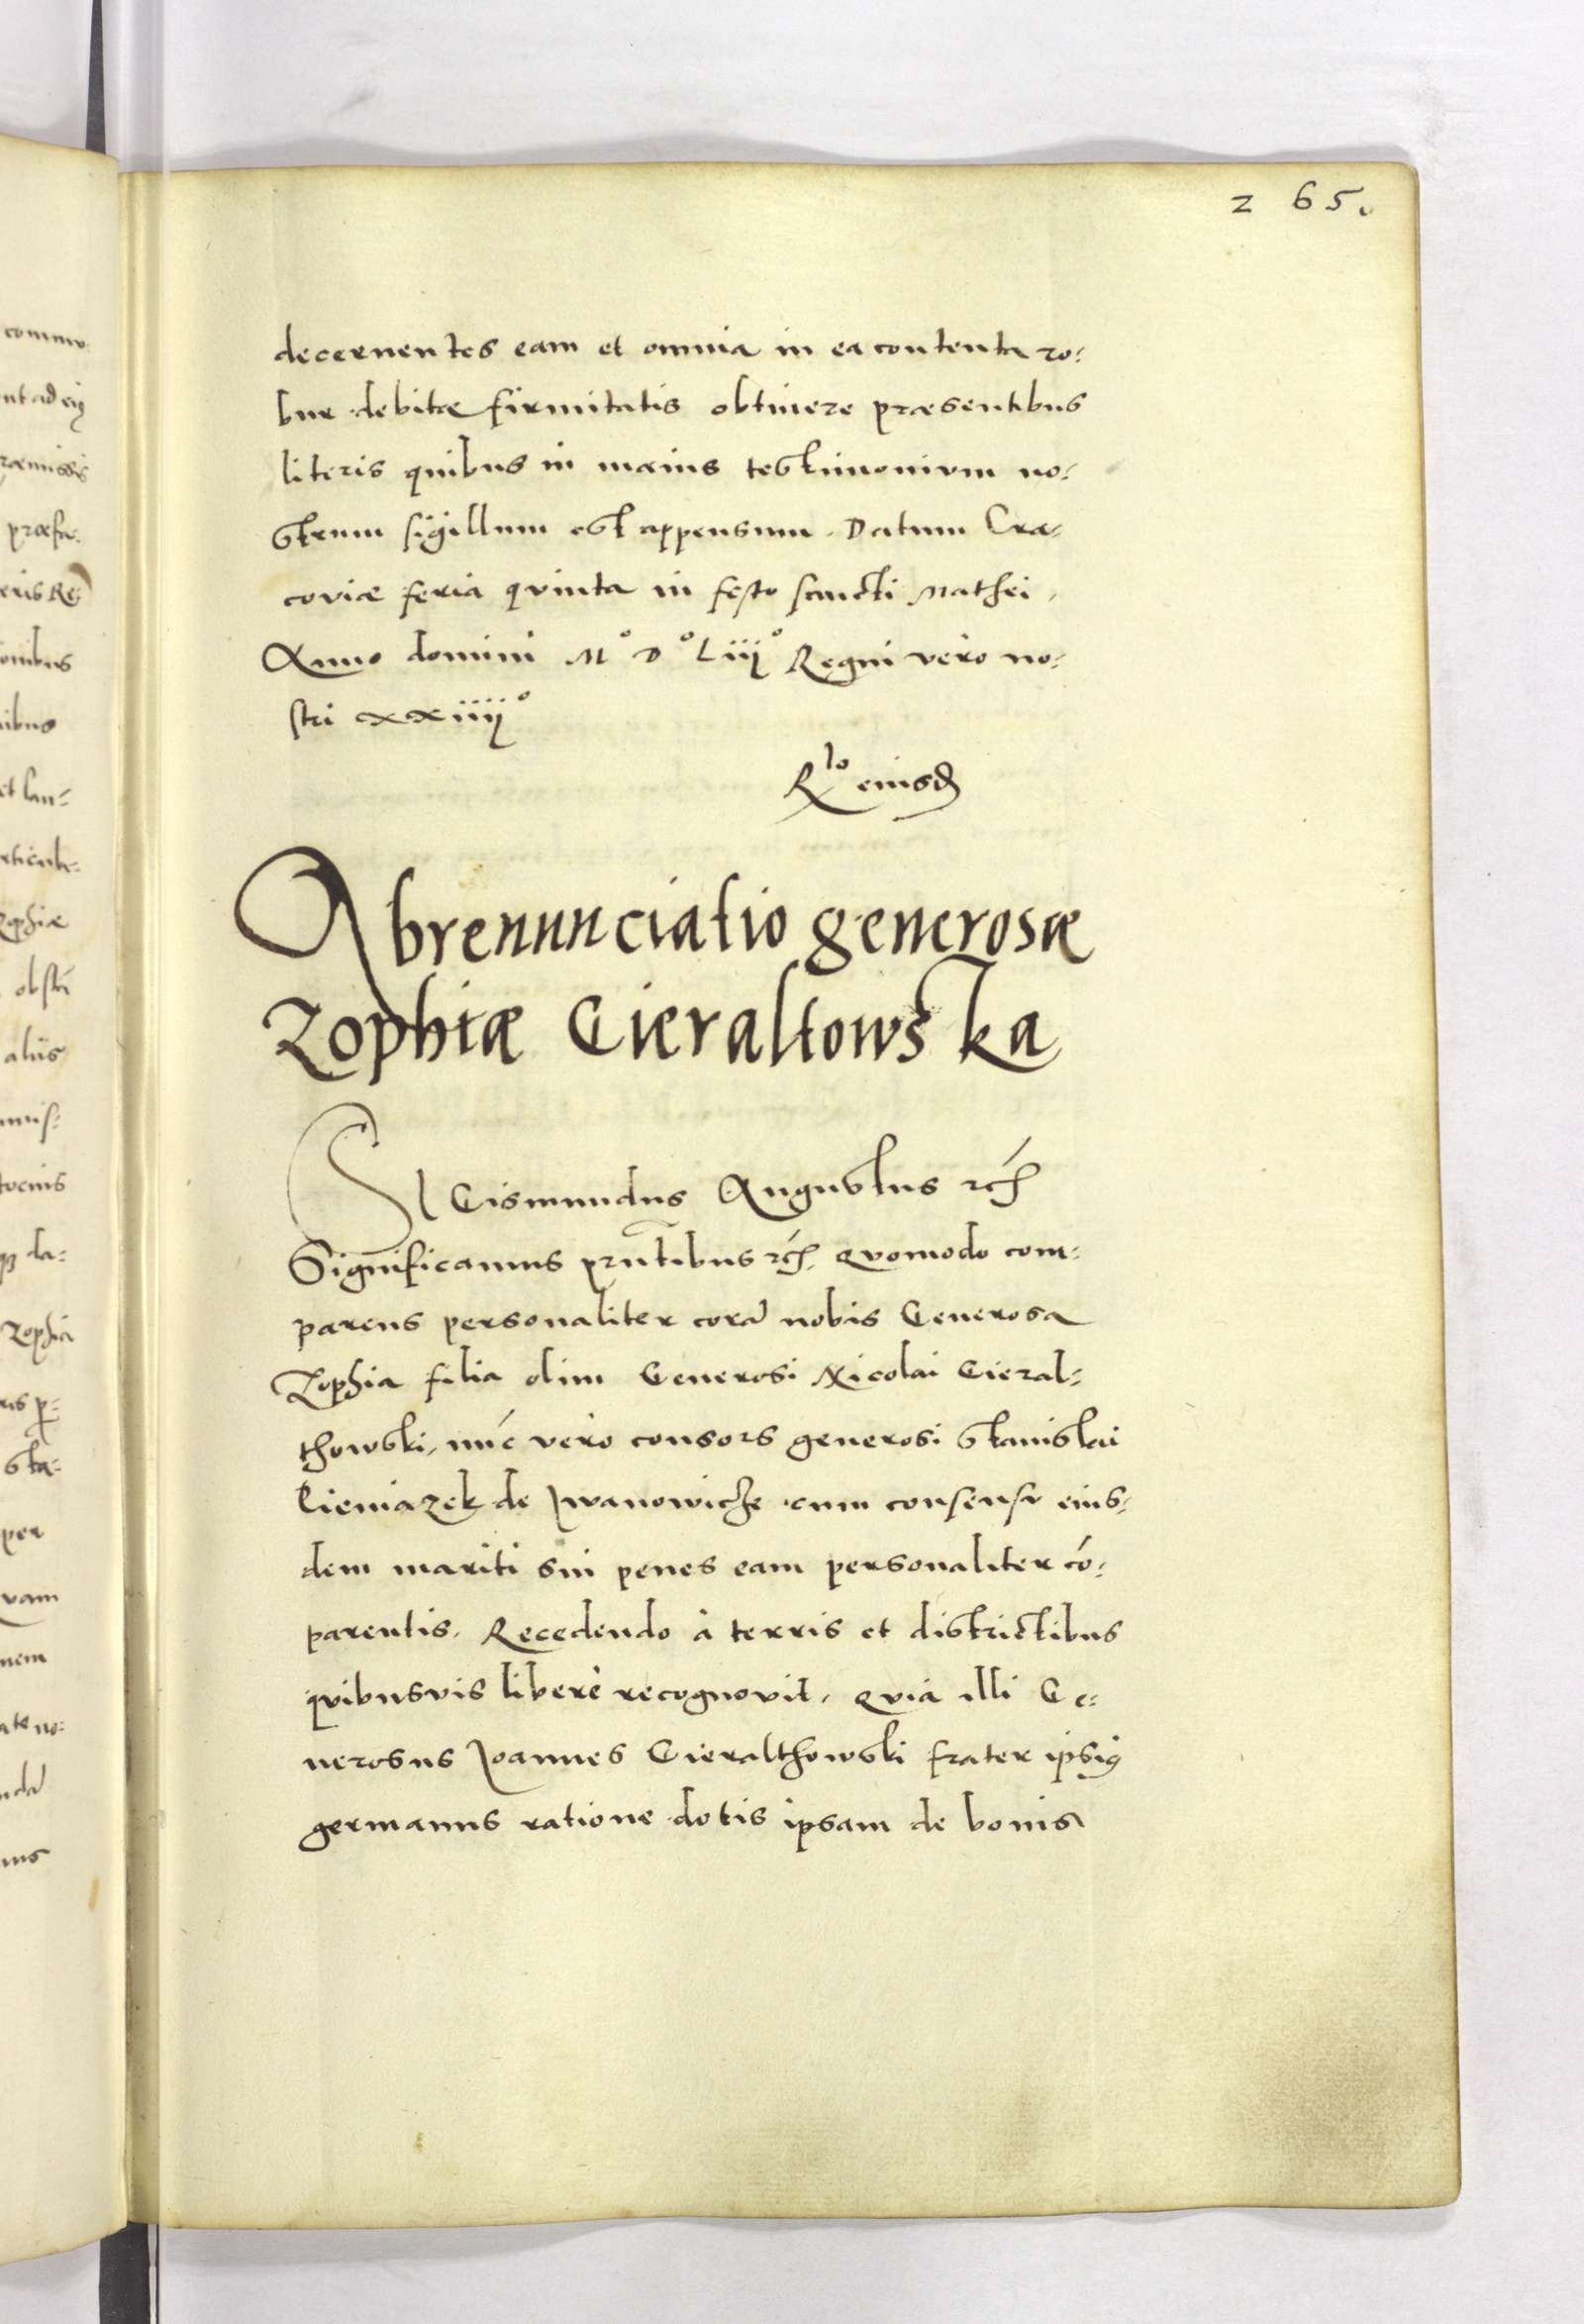 265.
decernentes eam et omnia in ea contenta ro:
bur debitæ firmitatis obtinere præsentibus
literis quibus in maius testimonium no:
strum sigillum est appensum. Datum Cra:
coviæ feria quinta in festo sancti Mathei,
Anno domini M° D° Liij° Regni vero no:
stri xxiiij°
R^lo eiusd
Abrenunciatio generosæ
Zophiæ Gieraltowska
SIGismundus Augustus rcƺ
Significamus prntibus rcƺ. Quomodo com:
parens personaliter corā nobis Generosa
Zophia filia olim Generosi Nicolai Gieral:
thowski, nūc vero consors generosi Stanislai
Cieniazek de Jwanowicze cum consensu eius:
dem mariti sui penes eam personaliter cō:
parentis. Recedendo à terris et districtibus
quibusvis liberè recognovit, quia illi Ge:
nerosus Joannes Gieralthowski frater ipsiꝰ
germanus ratione dotis ipsam de bonis